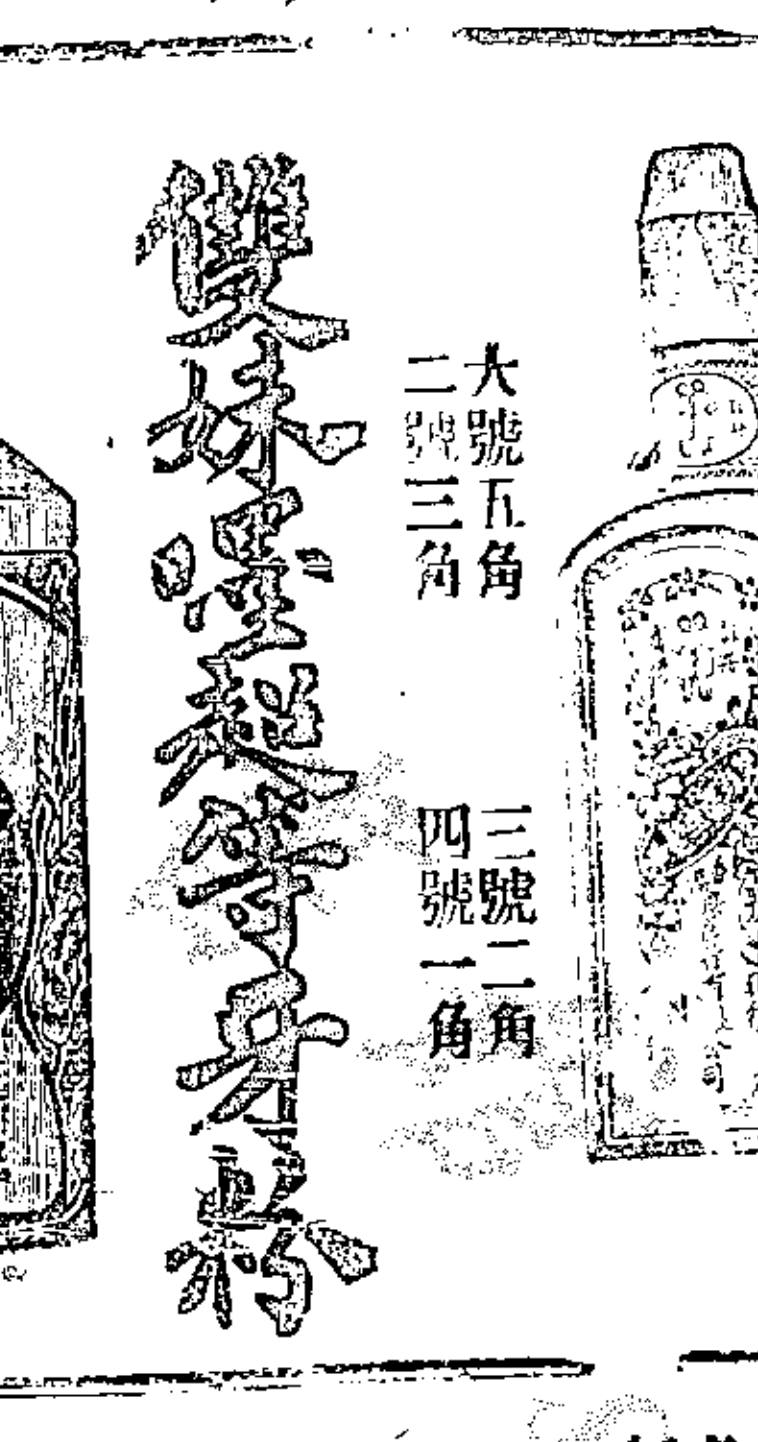 大號五角
二號三角
三號二角
四號一角
雙妹嚜超等牙粉